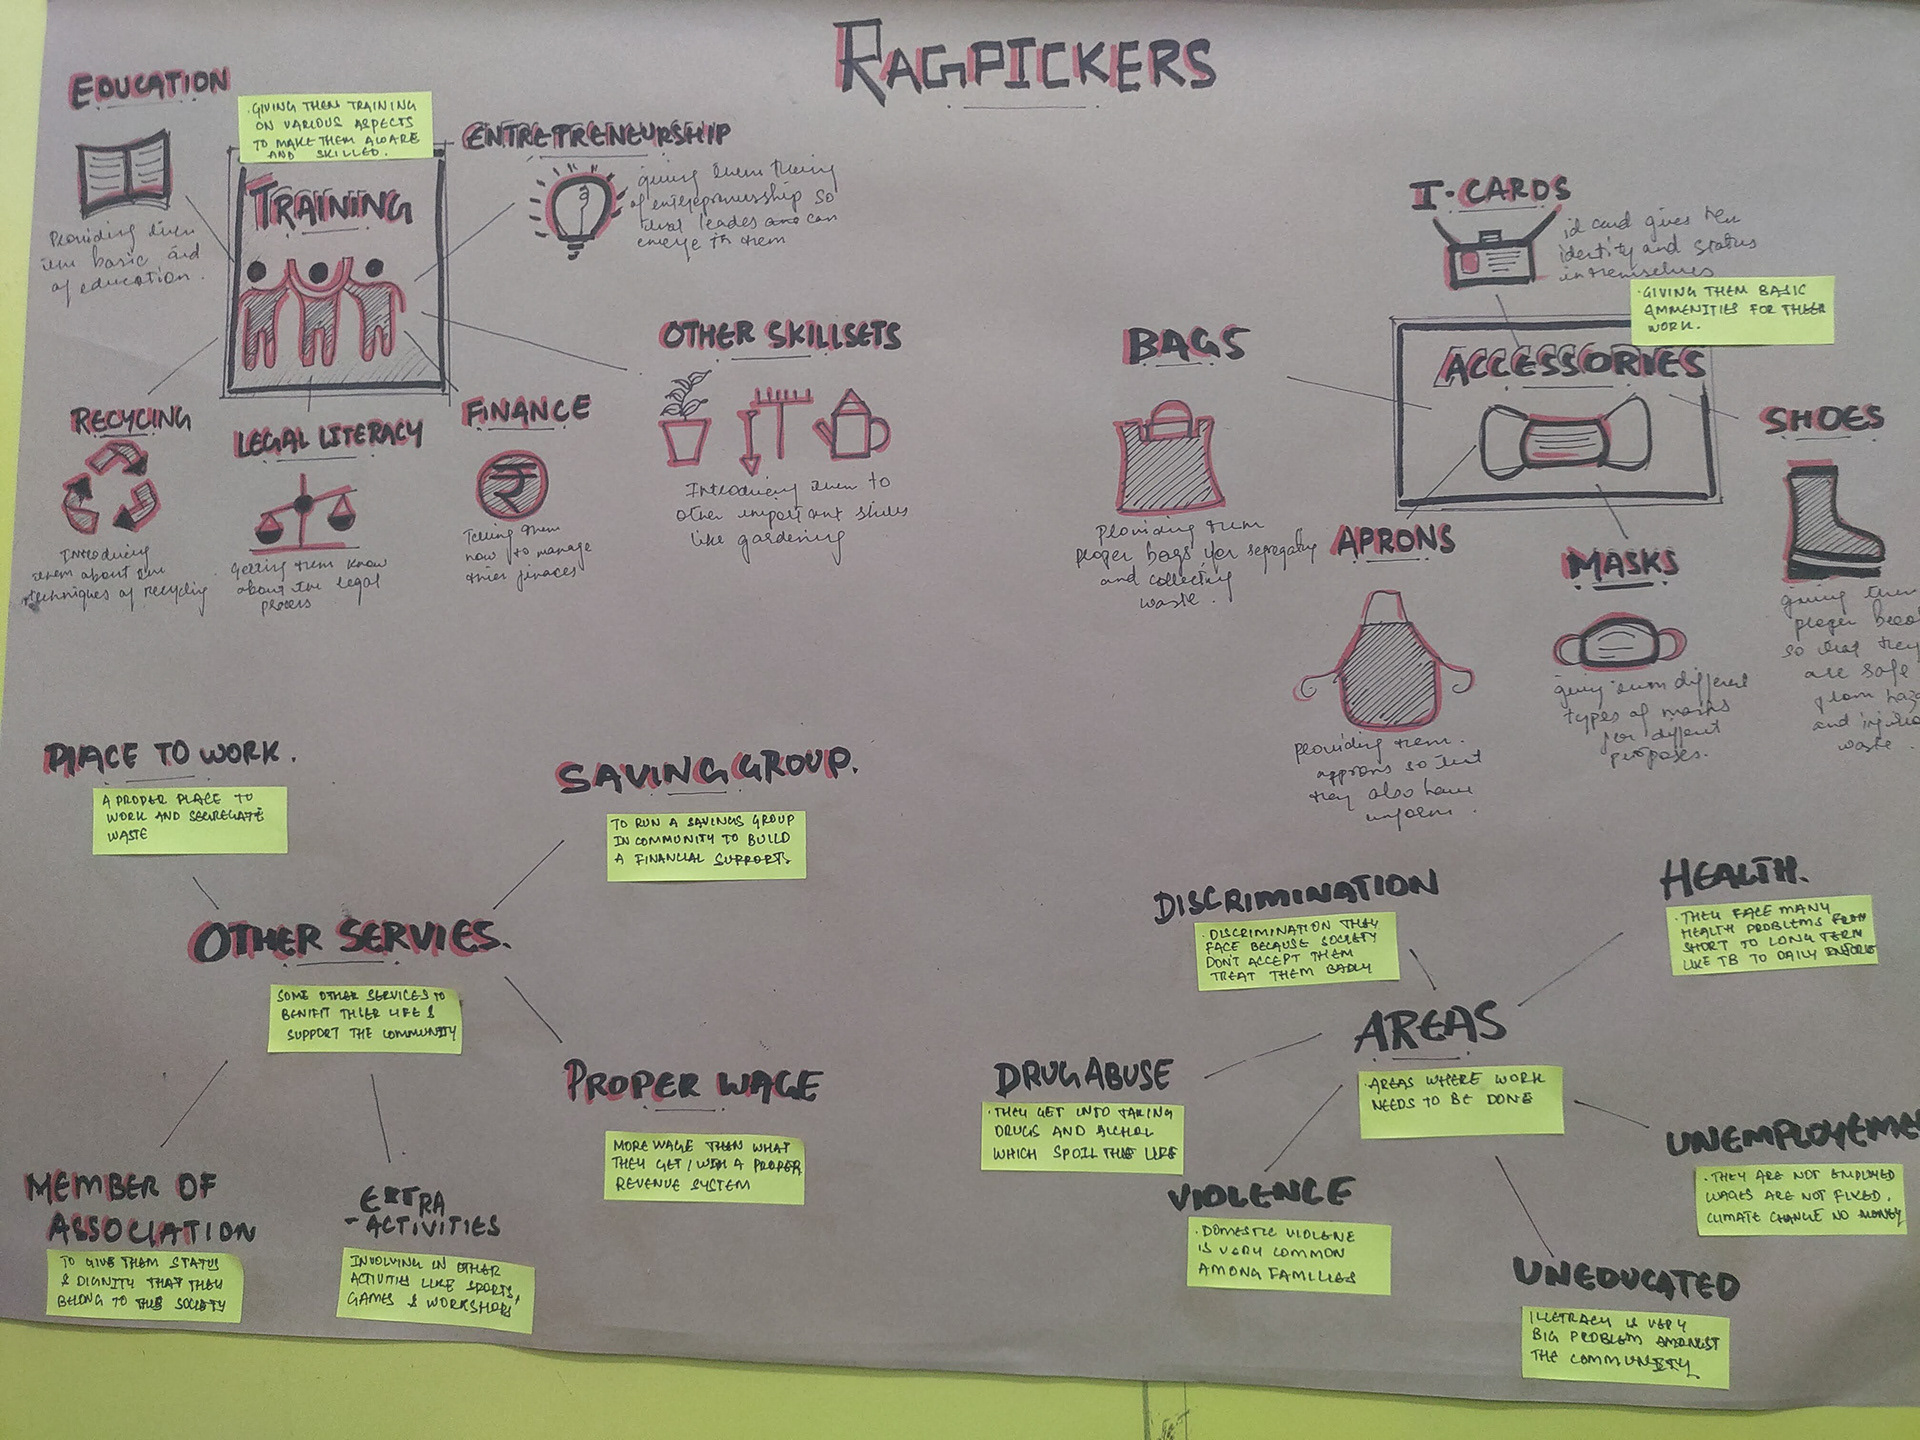 RAGPICKERS
EDUCATION
Providing them
basic
of education.
· GIVING THEM TRAINING
ON VARIOUS ASPECTS
TO MAKE THEM AWARE
AND SKILLED.
TRAINING
ENTREPRENEURSHIP
giving them
of entrepreneurship so
that leades and can
emerge in them
OTHER SKILLSETS
Introducing them to
other important skills
like gardening
RECYCLING
Introducing
them about the
techniques of recycling
LEGAL LITERACY
Getting them know
about the legal
process
FINANCE
₹
Telling them
how to manage
thier finaces
I-CARDS
id card gives
identity and status
in themselves
· GIVING THEM BASIC
AMMENITIES FOR THEIR
WORK.
ACCESSORIES
BAGS
Providing them
proper bags for segregating
and collecting
waste.
APRONS
providing them
approns so that
they also have
uniform.
MASKS
giving them different
types of masks
for different
purposes.
SHOES
giving them
proper
so that they
are safe
from
and
waste.
PLACE TO WORK.
A PROPER PLACE TO
WORK AND SEGREGATE
WASTE
SAVING GROUP.
TO RUN A SAVINGS GROUP
IN COMMUNITY TO BUILD
A FINANCIAL SUPPORTS.
OTHER SERVIES.
SOME OTHER SERVICES TO
BENIFIT THIER LIFE &
SUPPORT THE COMMUNITY
PROPER WAGE
MORE WAGE THEN WHAT
THEY GET / WITH A PROPER
REVENUE SYSTEM
MEMBER OF
ASSOCIATION
TO GIVE THEM STATUS
& DIGNITY THAT THEY
BELONG TO THIS SOCIETY
EXTRA
-ACTIVITIES
INVOLVING IN OTHER
ACTIVITIES LIKE SPORTS,
GAMES & WORKSHOPS
DISCRIMINATION
· DISCRIMINATION THEY
FACE BECAUSE SOCIETY
DON'T ACCEPT THEM
TREAT THEM BADLY
HEALTH.
· THEY FACE MANY
HEALTH PROBLEMS FROM
SHORT TO LONG TERM
LIKE TB TO DAILY
AREAS
· AREAS WHERE WORK
NEEDS TO BE DONE
DRUG ABUSE
· THEY GET INTO TAKING
DRUGS AND
WHICH SPOIL THIER LIFE
VIOLENCE
· DOMESTIC VIOLENE
IS VERY COMMON
AMONG FAMILIES
UNEMPLOYEME
· THEY ARE NOT EMPLOYED
WAGES ARE NOT FIXED.
CLIMATE CHANGE NO MONEY
UNEDUCATED
ILLETRACY IS VERY
BIG PROBLEM AMONGST
THE COMMUNITY